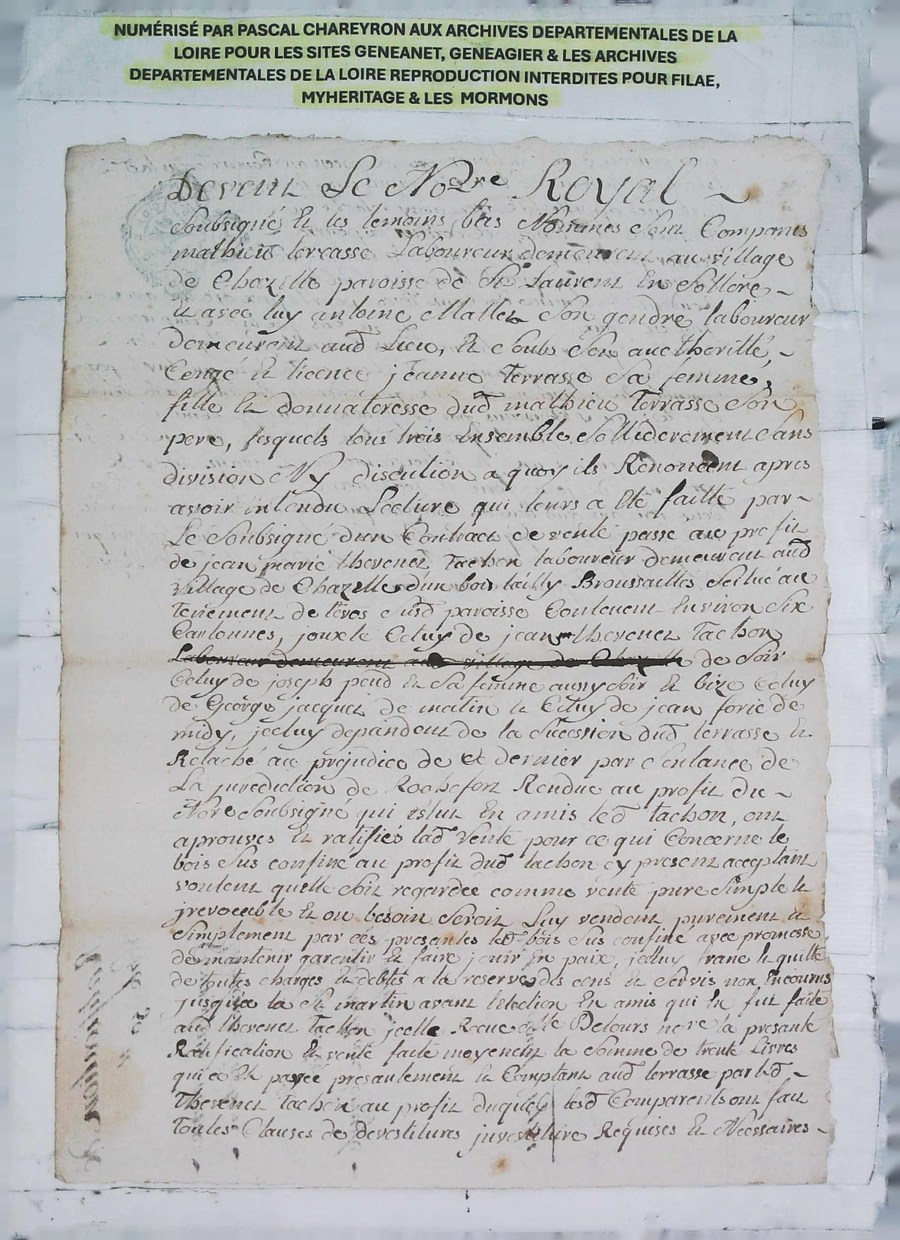 NUMÉRISÉ PAR PASCAL CHAREYRON AUX ARCHIVES DEPARTEMENTALES DE LA
LOIRE POUR LES SITES GENEANET, GENEAGIER & LES ARCHIVES
DEPARTEMENTALES DE LA LOIRE REPRODUCTION INTERDITES POUR FILAE,
MYHERITAGE & LES MORMONS
Devent Le No.re Royal
soubsigné Et les temoins bas Nommes sont Comparus
mathieu terrasse Laboureur demeurent au village
de Chazelle paroisse de St Laurent En Sollore
et avec luy antoine Mallet son gendre laboureur
demeurent aud Lieu, Et soubs son aucthorité,
Congé et licence jeanne terrasse sa femme,
fille Et donnateresse dud mathieu terrasse son
pere, lesquels tous trois Ensemble sollideremente sans
division Ny discution a quoy ils Renoncent apres
avoir intendu Lecture qui leurs a Eté faitte par
Le soubsigné dun Contract de vente passe au profit
de jean marie thevenet tachon laboureur demeurent aud
village de Chazelle dun bois tailly Broussailles scitué au
tenement de eusd paroisse Contenent Environ six
Cartonnes, jouxte Celuy de jean thevenet tachon
Laboureur demeurent aud village de Chazelle de soir
Celuy de joseph peud Et sa femme aussy soir Et bize Celuy
de George jacquet de matin Et Celuy de jean forie de
midy, jceluy dependent de la sucession dud terrasse Et
Relaché au prejudice de ce dernier par sentance de
La juridiction de Rochefort Rendue au profit du
Nore soubsigné qui Eslut En amis led tachon, ont
aprouves Et ratifiés lad vente pour ce qui Concerne le
bois sus confiné au profit dud tachon cy present acceptant
voulent quelle soit regardee comme vente pure simple Et
jrevocable Et ou besoin seroit Luy vendent purement et
simplement par ces presantes led bois sus confiné avec promesse
de maintenir garentir Et faire jouir en paix, jceluy franc Et quitte
de toutes charges Et debtes a la reserve des cens Et servis non Encourus
jusqua la St martin avant lelection En amis qui En fut faite
aud thevenet tachon jcelle Recue Delours nore la presante
Ratification Et vente faite moyenent la somme de trente Livres
qui a Eté payée presantement Et Comptant aud terrasse par led
thevenet tachon au profit duquel lesd Comparents ont fait
toutes Clauses de devestitures jnvestiture Requises Et Nécessaires